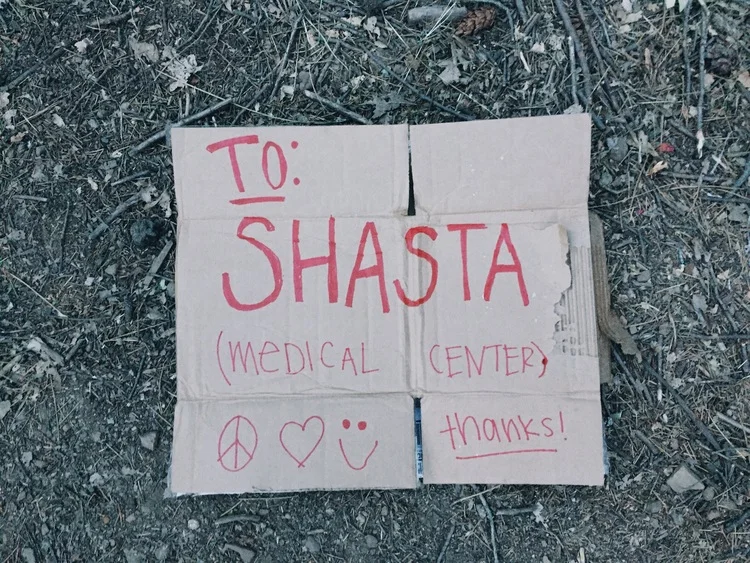 TO:
SHASTA
(MEDICAL CENTER)
thanks!